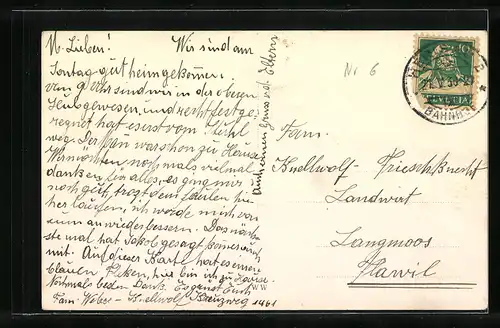 M. Lieben!
Wir sind am
Sontag gut heimgekomen.
von 9 Uhr sind wir in der oberen
Hub gewesen, und recht festge
regnet hat es erst vom Stuhl
weg. Der Fun war schon zu Hause
Wir möchten nochmals vielmal
danken für alles, es ging mir
noch gut, trotz dem laufen hie
her laufen, ich werde mich von
nun an wieder bessern. Das näch
ste mal hat Jakob gesagt kome er auf
mit. Auf dieser Karte hat es einen
blauen Fleken, hie bin ich zu Hause.
Nochmals besten Dank. Es grüsst Euch
Fam. Weber - Knellwolf Kreuzweg 1461
Auch einen Gruss v. d. Eltern
Nr 6
10
HELVETIA
BAHNHOF
Fam.
Knellwolf - Frieschknecht
Landwirt
Langmoos
Flawil